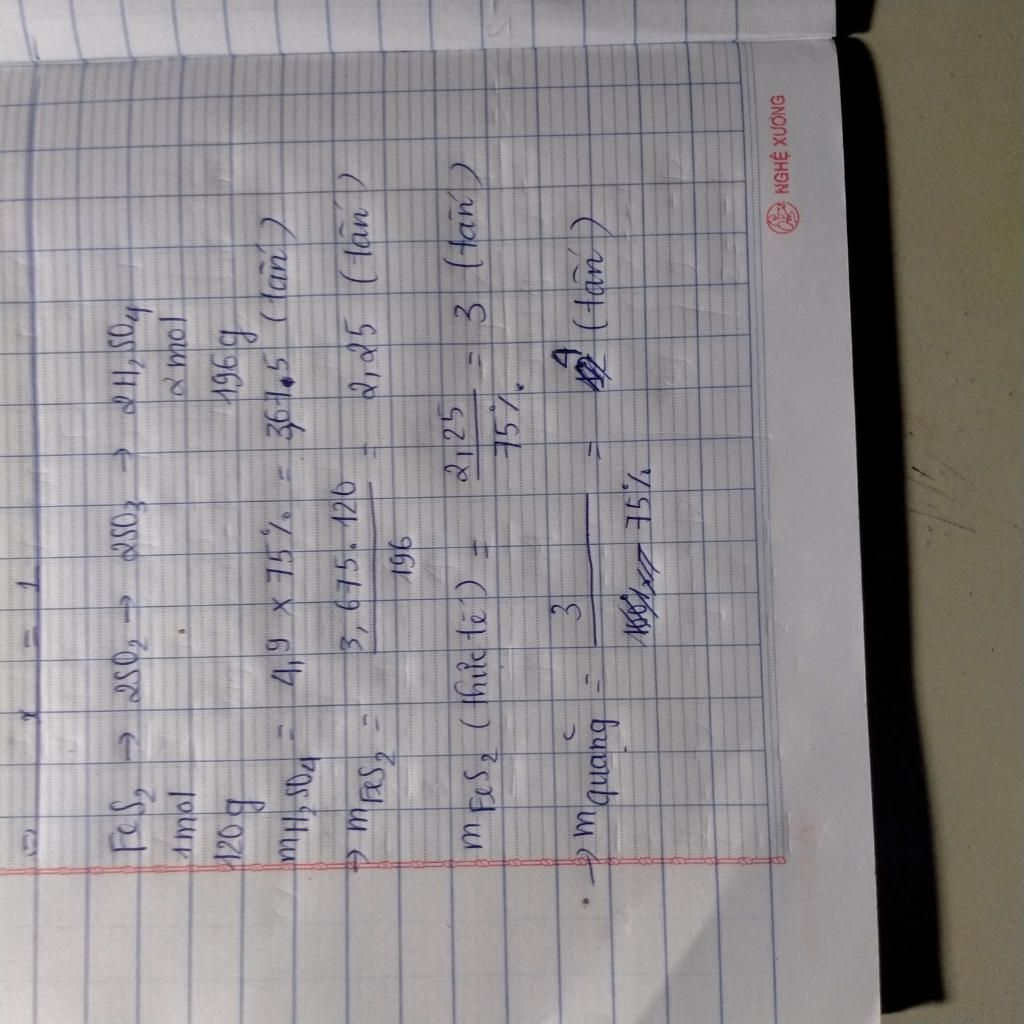 => x = 1
FeS2 → 2SO2 → 2SO3 → 2H2SO4
1mol 2mol
120g 196g
mH2SO4 = 4,9 x 75% = 3,67,5 (tấn)
→ mFeS2 = 3,675.120 / 196 = 2,25 (tấn)
mFeS2 (thực tế) = 2,25 / 75% = 3 (tấn)
→ mquặng = 3 / 75% = 4 (tấn)
NGHỆ XƯƠNG